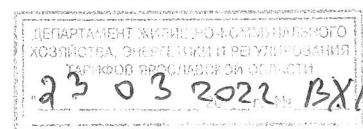 ДЕПАРТАМЕНТ ЖИЛИЩНО-КОММУНАЛЬНОГО
ХОЗЯЙСТВА, ЭНЕРГЕТИКИ И РЕГУЛИРОВАНИЯ
ТАРИФОВ ЯРОСЛАВСКОЙ ОБЛАСТИ
23 03 2022 ВХ